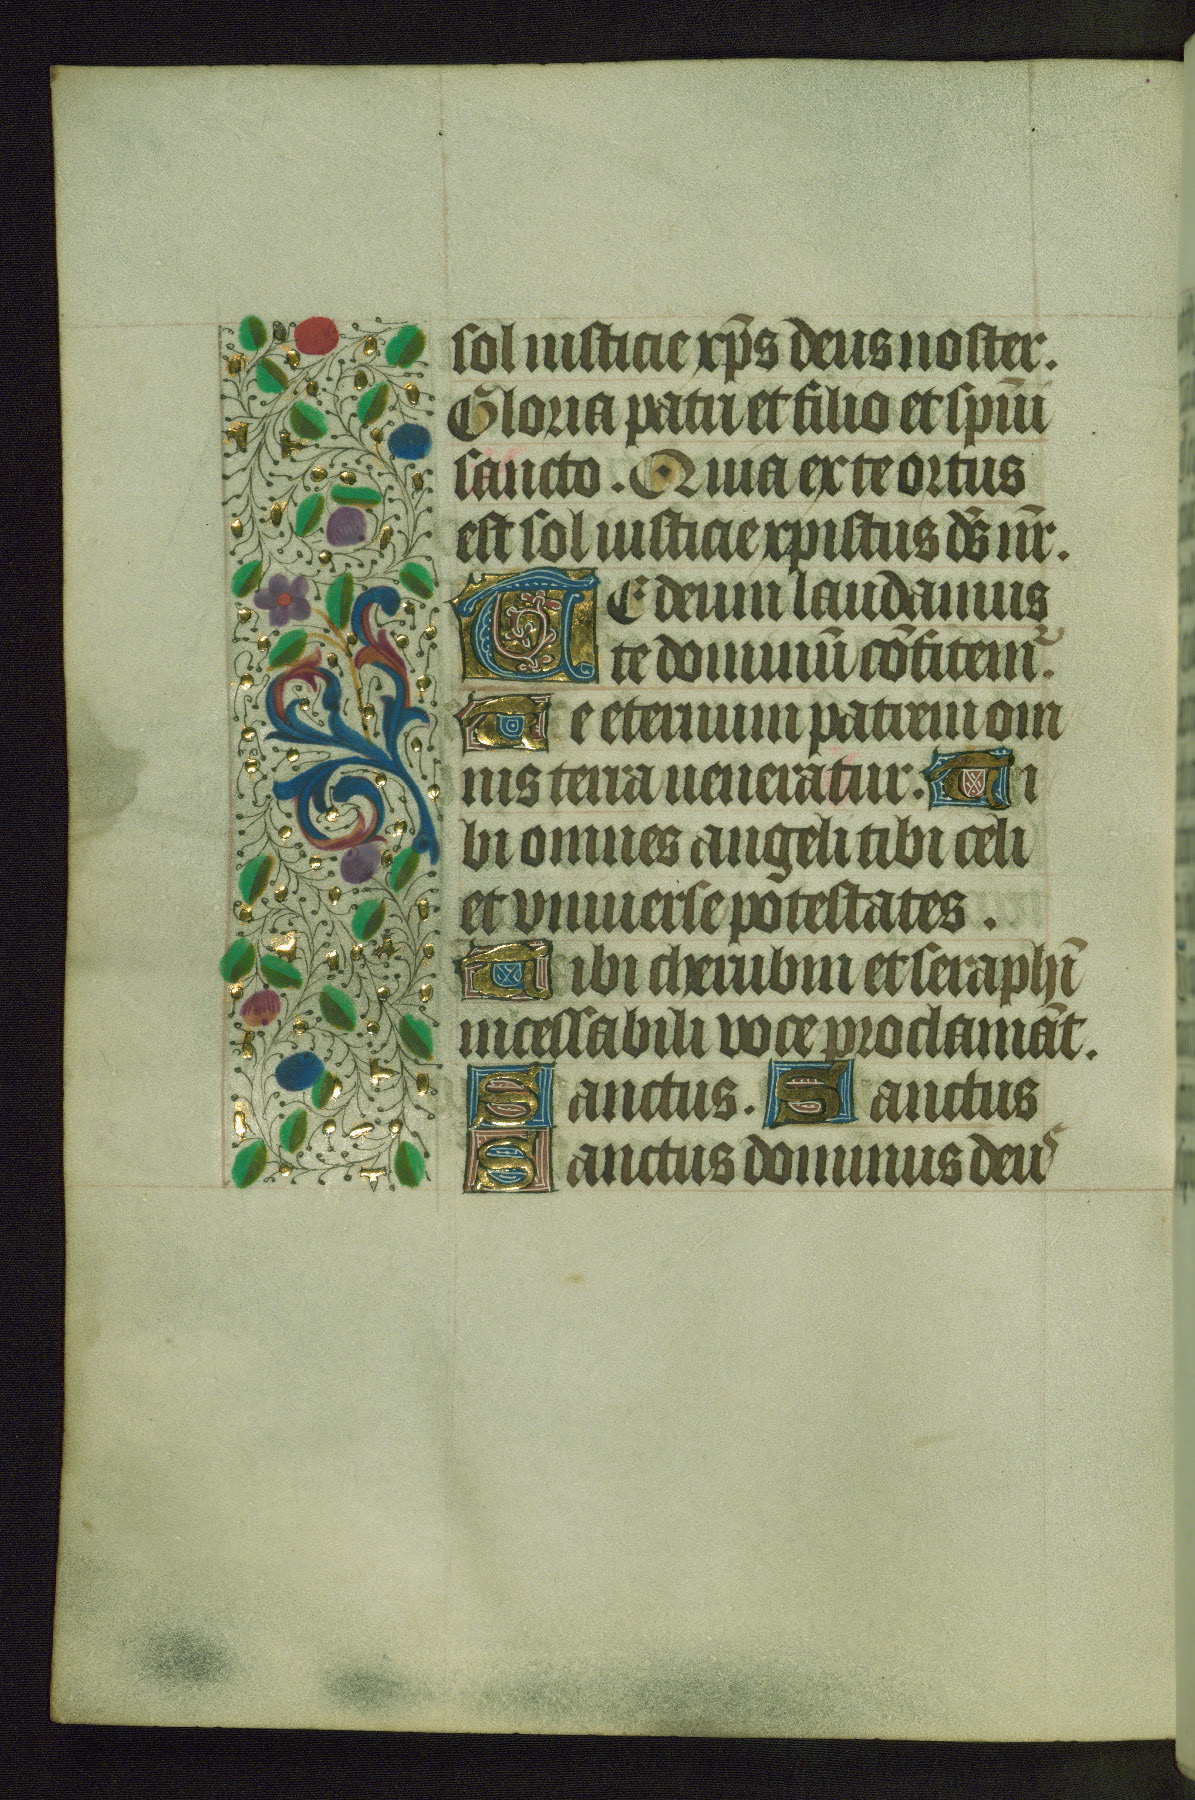 sol iusticie xp̄s deus noster.
Gloria patri et filio et sp̄iui
sancto. Quia ex te ortus
est sol iusticie xpistus ds̄ nr̄.
TE deum laudamus
te dominū cōfitemr̄.
Te eternum patrem om
nis terra ueneratur. Ti
bi omnes angeli tibi celi
et vniuerse potestates.
Tibi cherubin et seraphī
incessabili uoce proclamāt.
Sanctus. Sanctus
Sanctus dominus deus